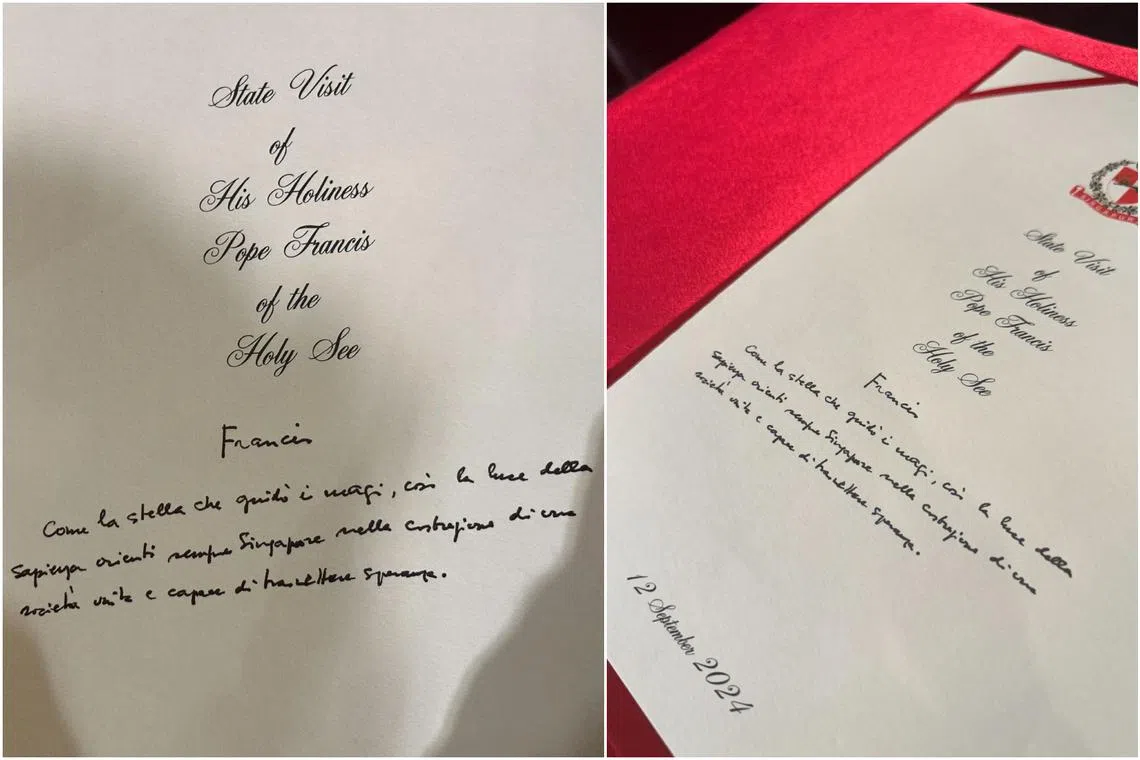 State Visit
of
His Holiness
Pope Francis
of the
Holy See
Francis
Come la stella che guidò i magi, così la luce della
sapienza orienti sempre Singapore nella costruzione di una
società unita e capace di trasmettere speranza.
SINGAPORE
State Visit
of
His Holiness
Pope Francis
of the
Holy See
Francis
Come la stella che guidò i magi, così la luce della
sapienza orienti sempre Singapore nella costruzione di una
società unita e capace di trasmettere speranza.
12 September 2024